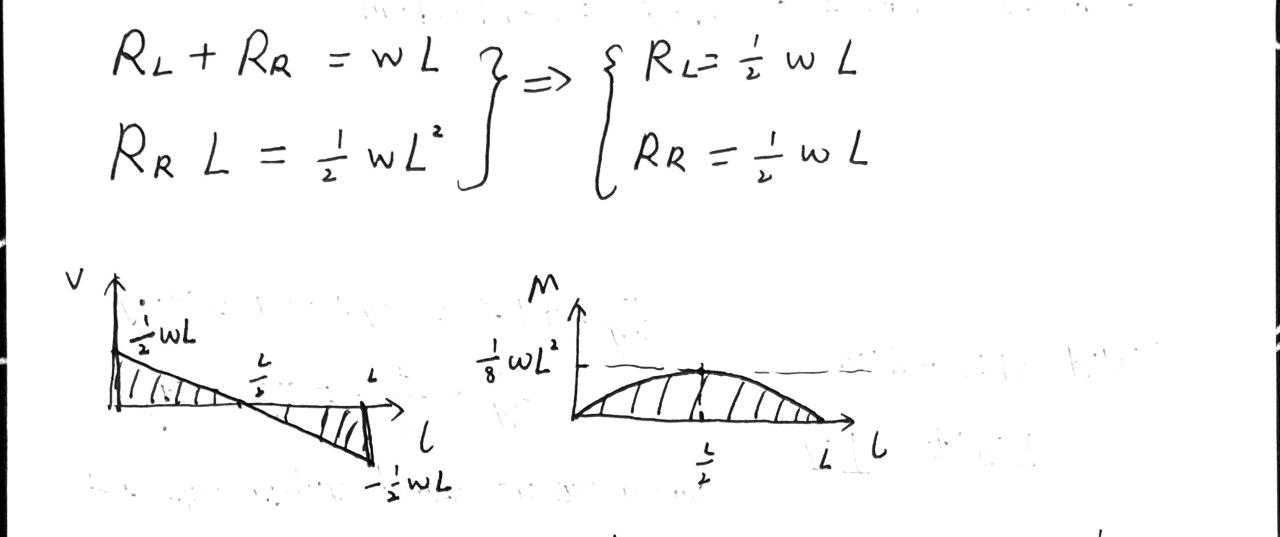 R_L + R_R = wL } ⇒ { R_L = 1/2 wL
R_R L = 1/2 wL² } ⇒ { R_R = 1/2 wL
V
1/2 wL
L/2
L
l
-1/2 wL
M
1/8 wL²
L/2
L
l